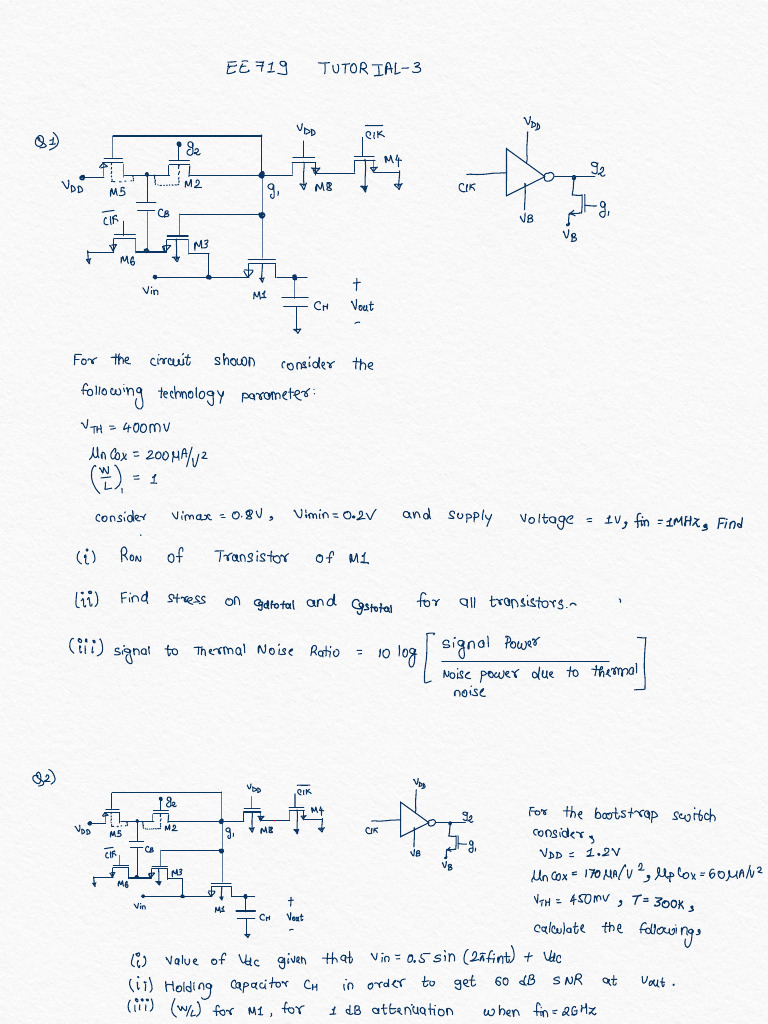 EE719 TUTORIAL-3
Q1)
VDD
CIK
g2
M4
VDD
M5
M2
g1
M8
CIK
VDD
g2
g1
VB
VB
CIK
CB
M3
M6
Vin
M1
CH
+
Vout
-
For the circuit shown consider the
following technology parameter:
VTH = 400mV
μn Cox = 200 μA/V2
(W/L)1 = 1
consider Vimax = 0.8V, Vimin = 0.2V and supply voltage = 1V, fin = 1MHz, Find
(i) RON of Transistor of M1
(ii) Find stress on Cgdtotal and Cgstotal for all transistors.
(iii) signal to Thermal Noise Ratio = 10 log [ signal Power
Noise power due to thermal
noise ]
Q2)
VDD
CIK
g2
M4
VDD
M5
M2
g1
M8
VDD
CIK
g2
g1
VB
VB
CIK
CB
M3
M6
Vin
M1
CH
+
Vout
-
For the bootstrap switch
consider,
VDD = 1.2V
μn Cox = 170 μA/V2, μp Cox = 60μA/V2
VTH = 450mV, T = 300K,
calculate the following,
(i) value of Vdc given that Vin = 0.5 sin (2πfint) + Vdc
(ii) Holding capacitor CH in order to get 60 dB SNR at Vout.
(iii) (W/L) for M1, for 1 dB attenuation when fin = 2GHz